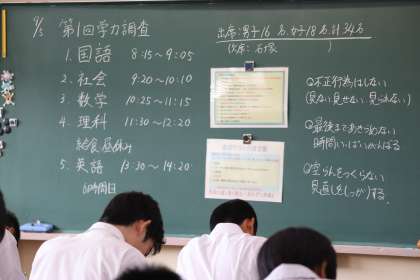 9/5 第1回学力調査
1. 国語 8:15～9:05
2. 社会 9:20～10:10
3. 数学 10:25～11:15
4. 理科 11:30～12:20
給食・昼休み
5. 英語 13:30～14:20
6時間目
出席:男子16名、女子18名、計34名
(欠席: )
◎不正行為はしない
(見ない、見せない、見られない)
◎最後まであきらめない
時間いっぱいがんばる
◎空らんをつくらない
見直しをしっかりする。